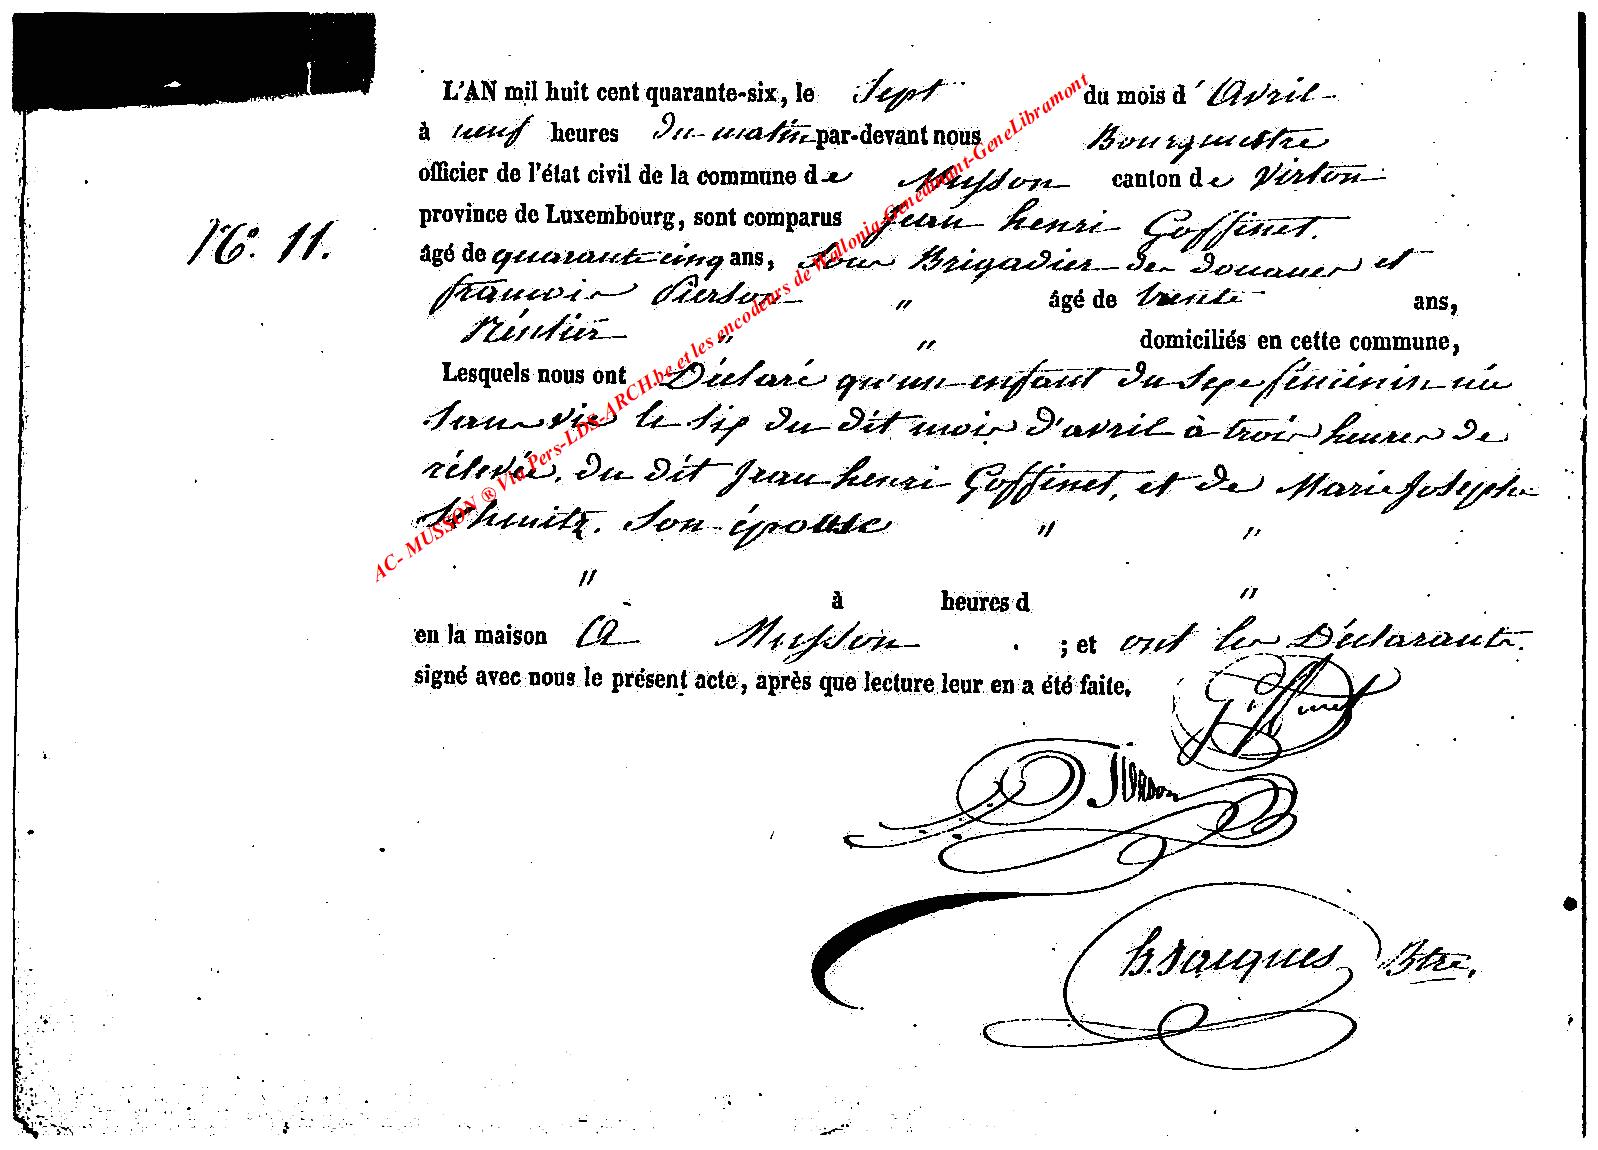 L'AN mil huit cent quarante-six, le Sept du mois d' Avril
à neuf heures du matin par-devant nous Bourgmestre
officier de l'état civil de la commune de Musson canton de Virton
N° 11.
province de Luxembourg, sont comparus Jean henri Goffinet.
âgé de quarante cinq ans, Sous Brigadier des douanes et
françois Pierson " âgé de trente ans,
Réntier " " domiciliés en cette commune,
Lesquels nous ont Déclaré qu'un enfant du sexe féminin née
sans vie le six du dit mois d'avril à trois heures de
rélevée, du dit Jean henri Goffinet, et de Marie Joseph
Schmitz. son épouse " "
"
à heures d "
en la maison à Musson ; et ont les Déclarants.
signé avec nous le présent acte, après que lecture leur en a été faite.
Goffinet
Pierson
H. Jacques Btre.
AC- MUSSON ® Via Pers-LDS-ARCH.be et les encodeurs de Wallonia-Genedinant-GeneLibramont